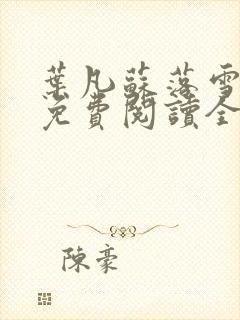 葉凡蘇落雪
免費閱讀全
陳豪